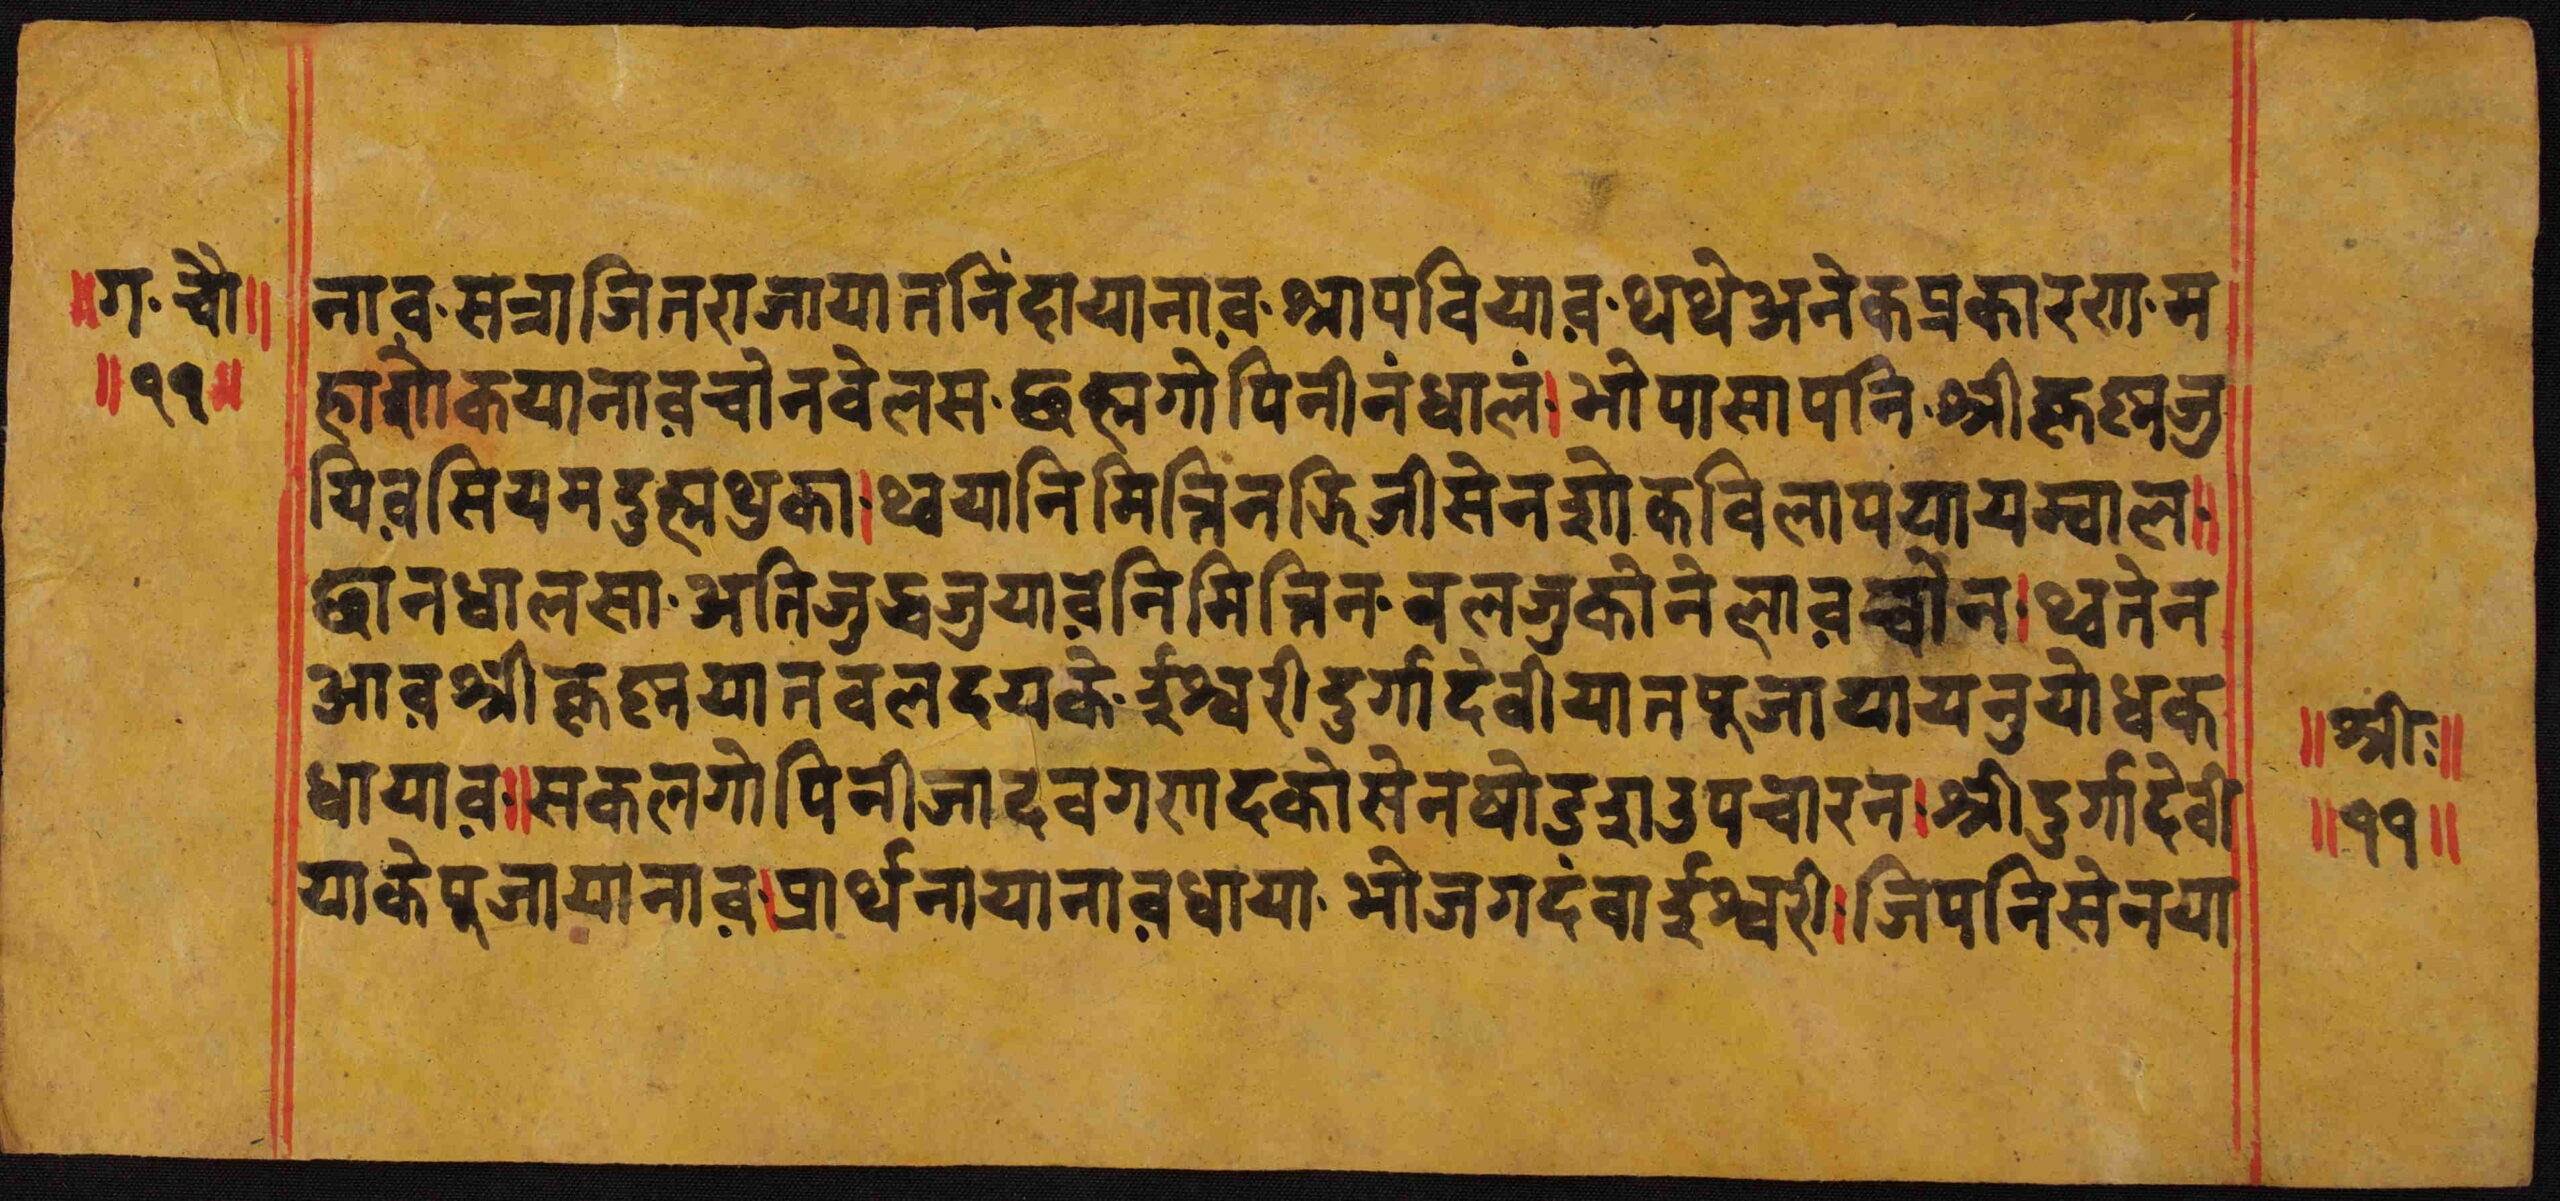 ॥ग॰ चौ॥
॥११॥
नाव॰सत्राजितराजायातनिंदायानाव॰श्रापवियाव॰थथेअनेकप्रकारण॰म
हाशोकयानावचोनवेलस॰छह्मगोपिनीनंधालं।भोपासापनि॰श्रीकृष्णजु
यिवसियमदुह्मथुका।थ्वयानिमित्तिनझिजीसेनशोकविलापयायम्वाल॥
छानधालसा॰अतिजुद्धजुयावनिमित्तिन॰बलजुकोनेलावच्वोन।थ्वतेन
आवश्रीकृष्णयातबलदयके॰ईश्वरीदुर्गादेवीयातपूजायायनुयोधक
धायाव॥सकलगोपिनीजादवगणदकोसेनषोडशउपचारन।श्रीदुर्गादेवी
याकेपूजायानाव।प्रार्थनायानावधाया॰भोजगदंबाईश्वरी।जिपनिसेनया
॥श्रीः॥
॥११॥